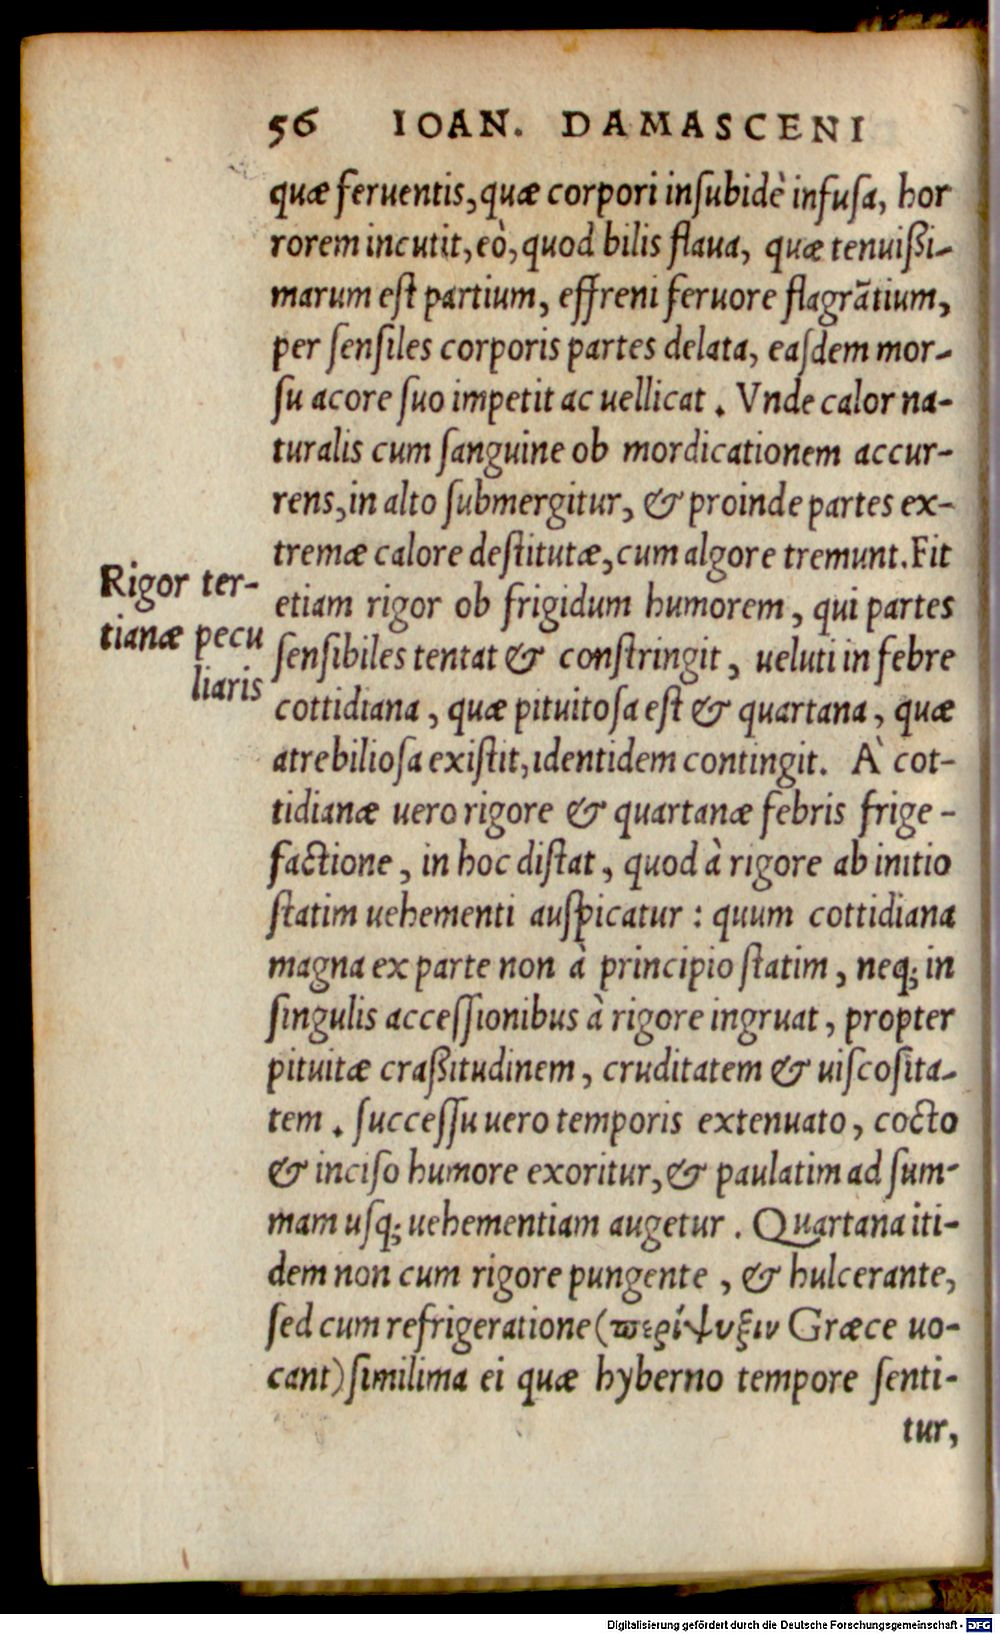 56 IOAN. DAMASCENI
quæ feruentis, quæ corpori inſubidè infuſa, hor
rorem incutit, eò, quod bilis flaua, quæ tenuißi-
marum eſt partium, effreni feruore flagrãtium,
per ſenſiles corporis partes delata, eaſdem mor-
ſu acore ſuo impetit ac uellicat. Vnde calor na-
turalis cum ſanguine ob mordicationem accur-
rens, in alto ſubmergitur, & proinde partes ex-
tremæ calore deſtitutæ, cum algore tremunt. Fit
etiam rigor ob frigidum humorem, qui partes
ſenſibiles tentat & conſtringit, ueluti in febre
cottidiana, quæ pituitoſa eſt & quartana, quæ
atrebilioſa exiſtit, identidem contingit. À cot-
tidianæ uero rigore & quartanæ febris frige-
factione, in hoc diſtat, quod à rigore ab initio
ſtatim uehementi auſpicatur: quum cottidiana
magna ex parte non à principio ſtatim, neq; in
ſingulis acceſſionibus à rigore ingruat, propter
pituitæ craßitudinem, cruditatem & uiſcoſita-
tem. ſucceſſu uero temporis extenuato, cocto
& inciſo humore exoritur, & paulatim ad ſum-
mam uſq; uehementiam augetur. Quartana iti-
dem non cum rigore pungente, & hulcerante,
ſed cum refrigeratione (ϖερίψυξιν Græce uo-
cant) ſimilima ei quæ hyberno tempore ſenti-
tur,
Rigor ter-
tianæ pecu
liaris
Digitalisierung gefördert durch die Deutsche Forschungsgemeinschaft - DFG